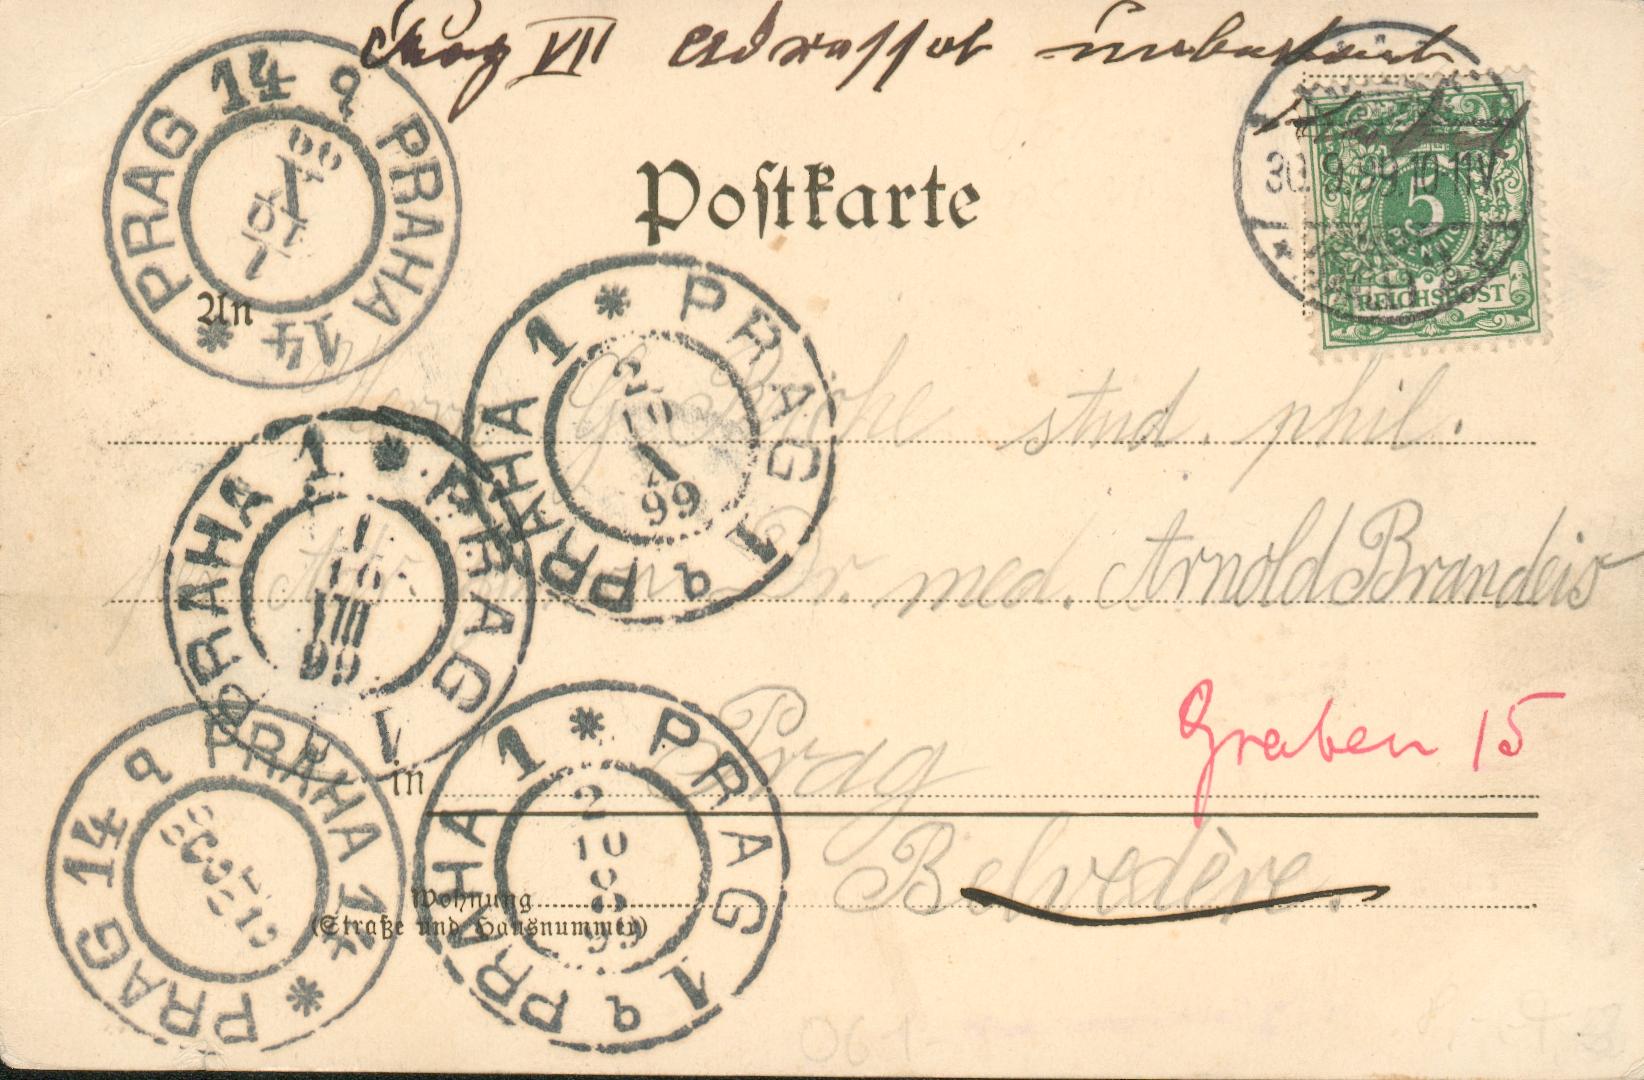 Prag VII Adressat unbekannt
PRAG 14 q PRAHA 14
1
10
99
Postkarte
30.9.99 10-11 V
5
PFENNIG
REICHSPOST
An
Herrn G. stud. phil.
PRAG 1 q PRAHA 1
2
10
X
99
Dr. med. Arnold Brandeis
PRAG PRAHA 1
1
VIII
99
Prag
Graben 15
in
Belvedère.
PRAG 14 q PRAHA 14
PRAG 1 q PRAHA 1
2
10
99
Wohnung
(Straße und Hausnummer)
061